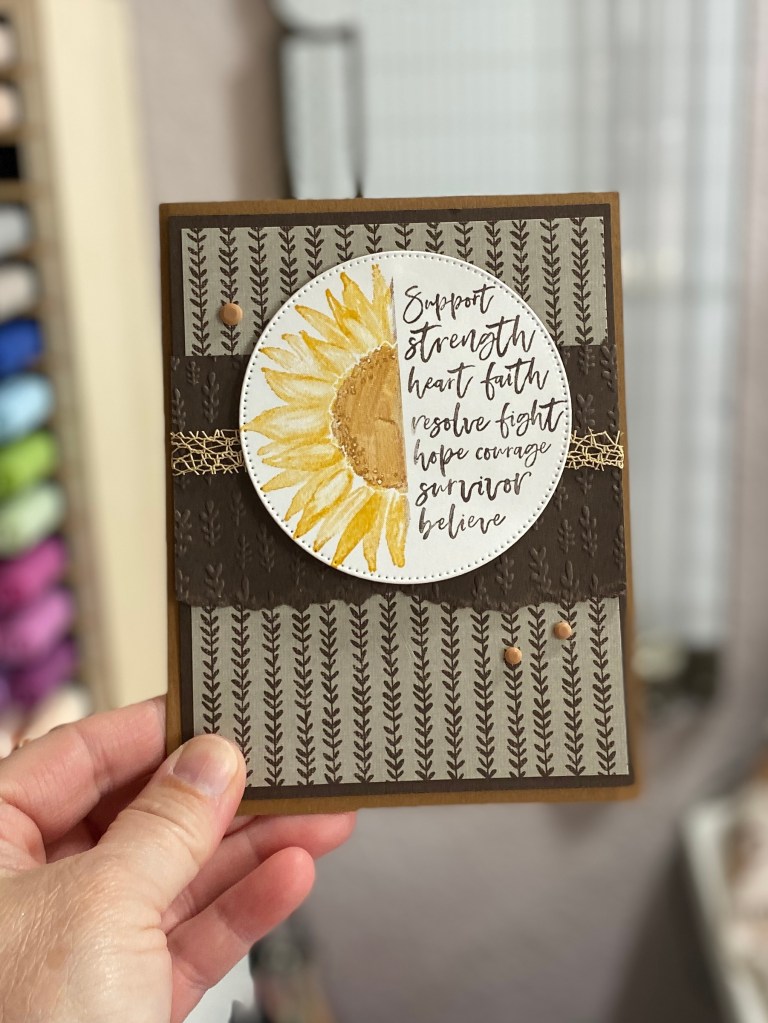 Support
strength
heart faith
resolve fight
hope courage
survivor
believe